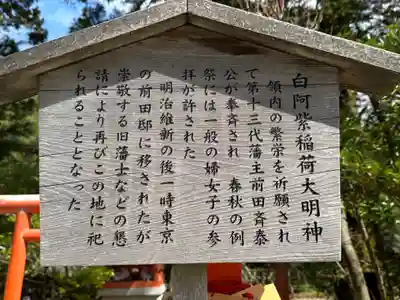 白阿紫稲荷大明神
領内の繁栄を祈願され
て第十三代藩主前田斉泰
公が奉斉され 春秋の例
祭には一般の婦女子の参
拝が許された
明治維新の後一時東京
の前田邸に移されたが
崇敬する旧藩士などの懇
請により再びこの地に祀
られることとなった